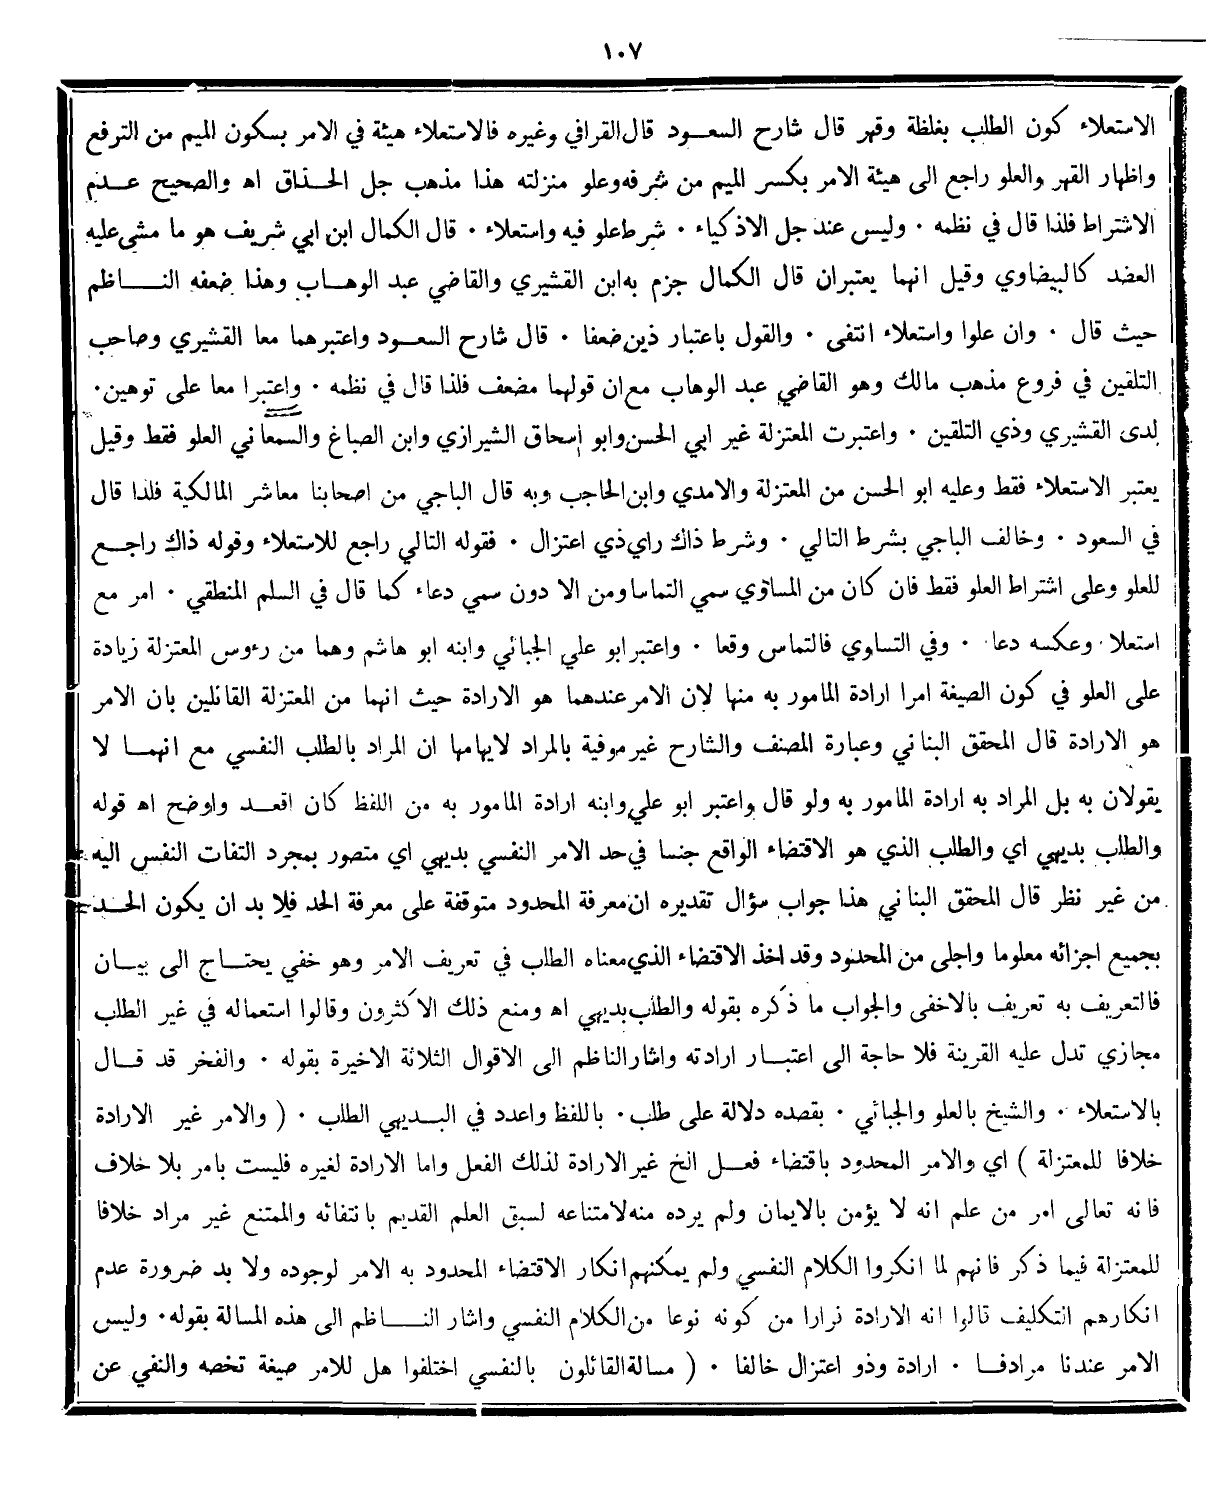 ١٠٧
الاستعلاء كون الطلب بغلظة وقهر قال شارح السعود قال القرافي وغيره فالاستعلاء هيئة في الامر بسكون الميم من الترفع
واظهار القهر والعلو راجع الى هيئة الامر بكسر الميم من شرفه وعلو منزلته هذا مذهب جل الحذاق اه والصحيح عدم
الاشتراط فلذا قال في نظمه ٠ وليس عند جل الاذكياء ٠ شرط علو فيه واستعلاء ٠ قال الكمال ابن ابي شريف هو ما مشى عليه
العضد كالبيضاوي وقيل انهما يعتبران قال الكمال جزم به ابن القشيري والقاضي عبد الوهاب وهذا ضعفه الناظم
حيث قال ٠ وان علوا واستعلاء انتفى ٠ والقول باعتبار ذين ضعفا ٠ قال شارح السعود واعتبرهما معا القشيري وصاحب
التلقين في فروع مذهب مالك وهو القاضي عبد الوهاب مع ان قولهما مضعف فلذا قال في نظمه ٠ واعتبرا معا على توهين ٠
لدى القشيري وذي التلقين ٠ واعتبرت المعتزلة غير ابي الحسن وابو إسحاق الشيرازي وابن الصباغ والسمعاني العلو فقط وقيل
يعتبر الاستعلاء فقط وعليه ابو الحسن من المعتزلة والامدي وابن الحاجب وبه قال الباجي من اصحابنا معاشر المالكية فلذا قال
في السعود ٠ وخالف الباجي بشرط التالي ٠ وشرط ذاك راي ذي اعتزال ٠ فقوله التالي راجع للاستعلاء وقوله ذاك راجع
للعلو وعلى اشتراط العلو فقط فان كان من المساوي سمي التماسا ومن الا دون سمي دعاء كما قال في السلم المنطقي ٠ امر مع
استعلا وعكسه دعا ٠ وفي التساوي فالتماس وقعا ٠ واعتبر ابو علي الجبائي وابنه ابو هاشم وهما من رءوس المعتزلة زيادة
على العلو في كون الصيغة امرا ارادة المامور به منها لان الامر عندهما هو الارادة حيث انهما من المعتزلة القائلين بان الامر
هو الارادة قال المحقق البناني وعبارة المصنف والشارح غير موفية بالمراد لايهامها ان المراد بالطلب النفسي مع انهما لا
يقولان به بل المراد به ارادة المامور به ولو قال واعتبر ابو علي وابنه ارادة المامور به من اللفظ كان اقعد واوضح اه قوله
والطلب بديهي اي والطلب الذي هو الاقتضاء الواقع جنسا في حد الامر النفسي بديهي اي متصور بمجرد التفات النفس اليه
من غير نظر قال المحقق البناني هذا جواب سؤال تقديره ان معرفة المحدود متوقفة على معرفة الحد فلا بد ان يكون الحد
بجميع اجزائه معلوما واجلى من المحدود وقد اخذ الاقتضاء الذي معناه الطلب في تعريف الامر وهو خفي يحتاج الى بيان
فالتعريف به تعريف بالاخفى والجواب ما ذكره بقوله والطلب بديهي اه ومنع ذلك الاكثرون وقالوا استعماله في غير الطلب
مجازي تدل عليه القرينة فلا حاجة الى اعتبار ارادته واشار الناظم الى الاقوال الثلاثة الاخيرة بقوله ٠ والفخر قد قال
بالاستعلاء ٠ والشيخ بالعلو والجبائي ٠ بقصده دلالة على طلب ٠ باللفظ واعدد في البديهي الطلب ٠ ( والامر غير الارادة
خلافا للمعتزلة ) اي والامر المحدود باقتضاء فعل الخ غير الارادة لذلك الفعل واما الارادة لغيره فليست بامر بلا خلاف
فانه تعالى امر من علم انه لا يؤمن بالايمان ولم يرده منه لامتناعه لسبق العلم القديم بانتفائه والممتنع غير مراد خلافا
للمعتزلة فيما ذكر فانهم لما انكروا الكلام النفسي ولم يمكنهم انكار الاقتضاء المحدود به الامر لوجوده ولا بد ضرورة عدم
انكارهم التكليف قالوا انه الارادة فرارا من كونه نوعا من الكلام النفسي واشار الناظم الى هذه المسالة بقوله ٠ وليس
الامر عندنا مرادفا ٠ ارادة وذو اعتزال خالفا ٠ ( مسالة القائلون بالنفسي اختلفوا هل للامر صيغة تخصه والنفي عن